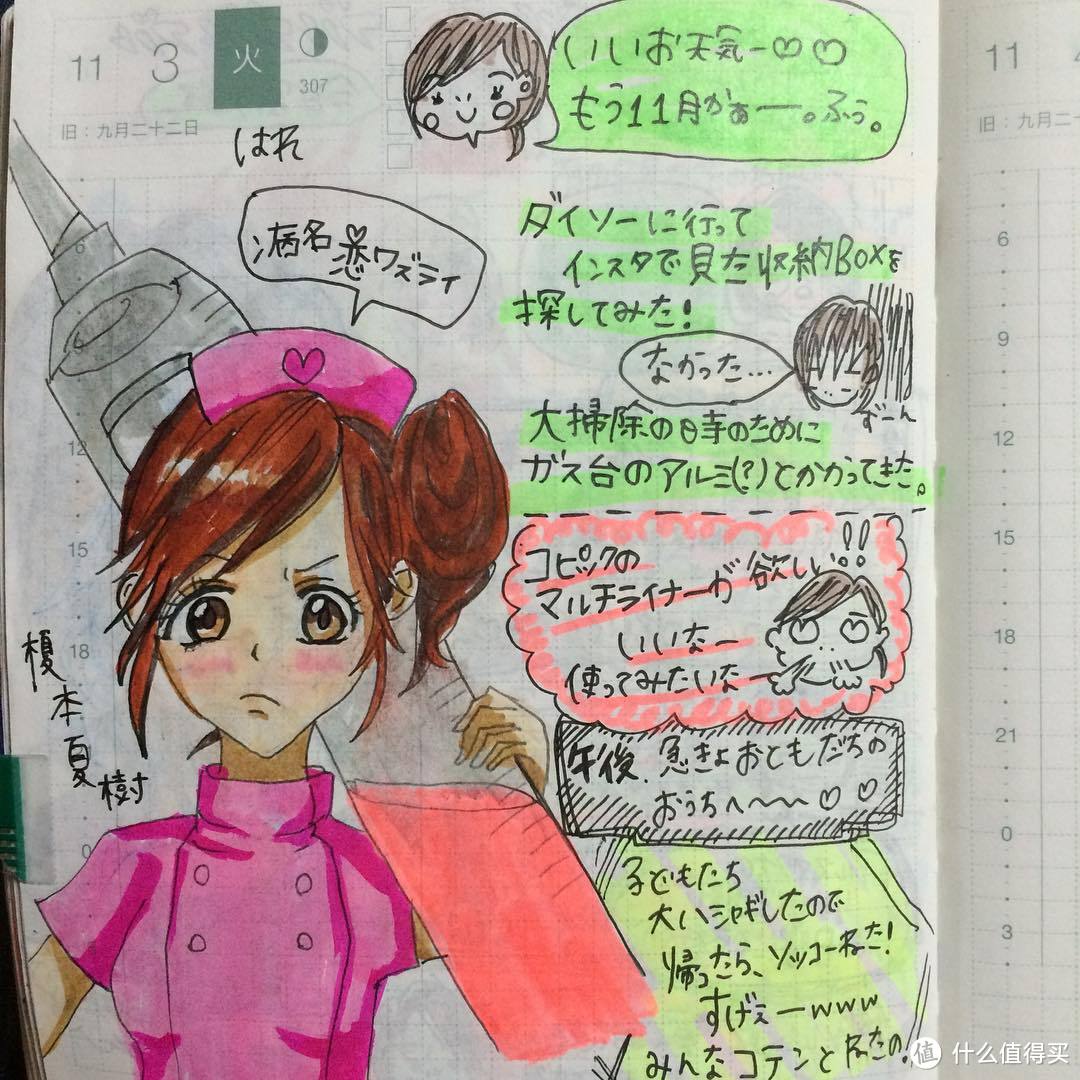 11 3 火
307
旧：九月二十二日
はれ
いいお天気ー♡♡
もう11月かぁー。ふぅ。
病名恋ワズライ
ダイソーに行って
インスタで見た収納BOXを
探してみた！
なかった…
ずーん
大掃除の時のために
ガス台のアルミ(?)とかかってきた。
コピックの
マルチライナーが欲しい!!
いいなー
使ってみたいなー
榎本夏樹
午後、急きょおともだちの
おうちへ〜〜♡♡
子どもたち
大ハシャギしたので
帰ったら、ソッコーねた！
すげぇーwww
みんなコテンとねたの。
6
9
12
15
18
21
0
3
11
旧：九月二十
6
9
12
15
18
21
0
3
值 什么值得买